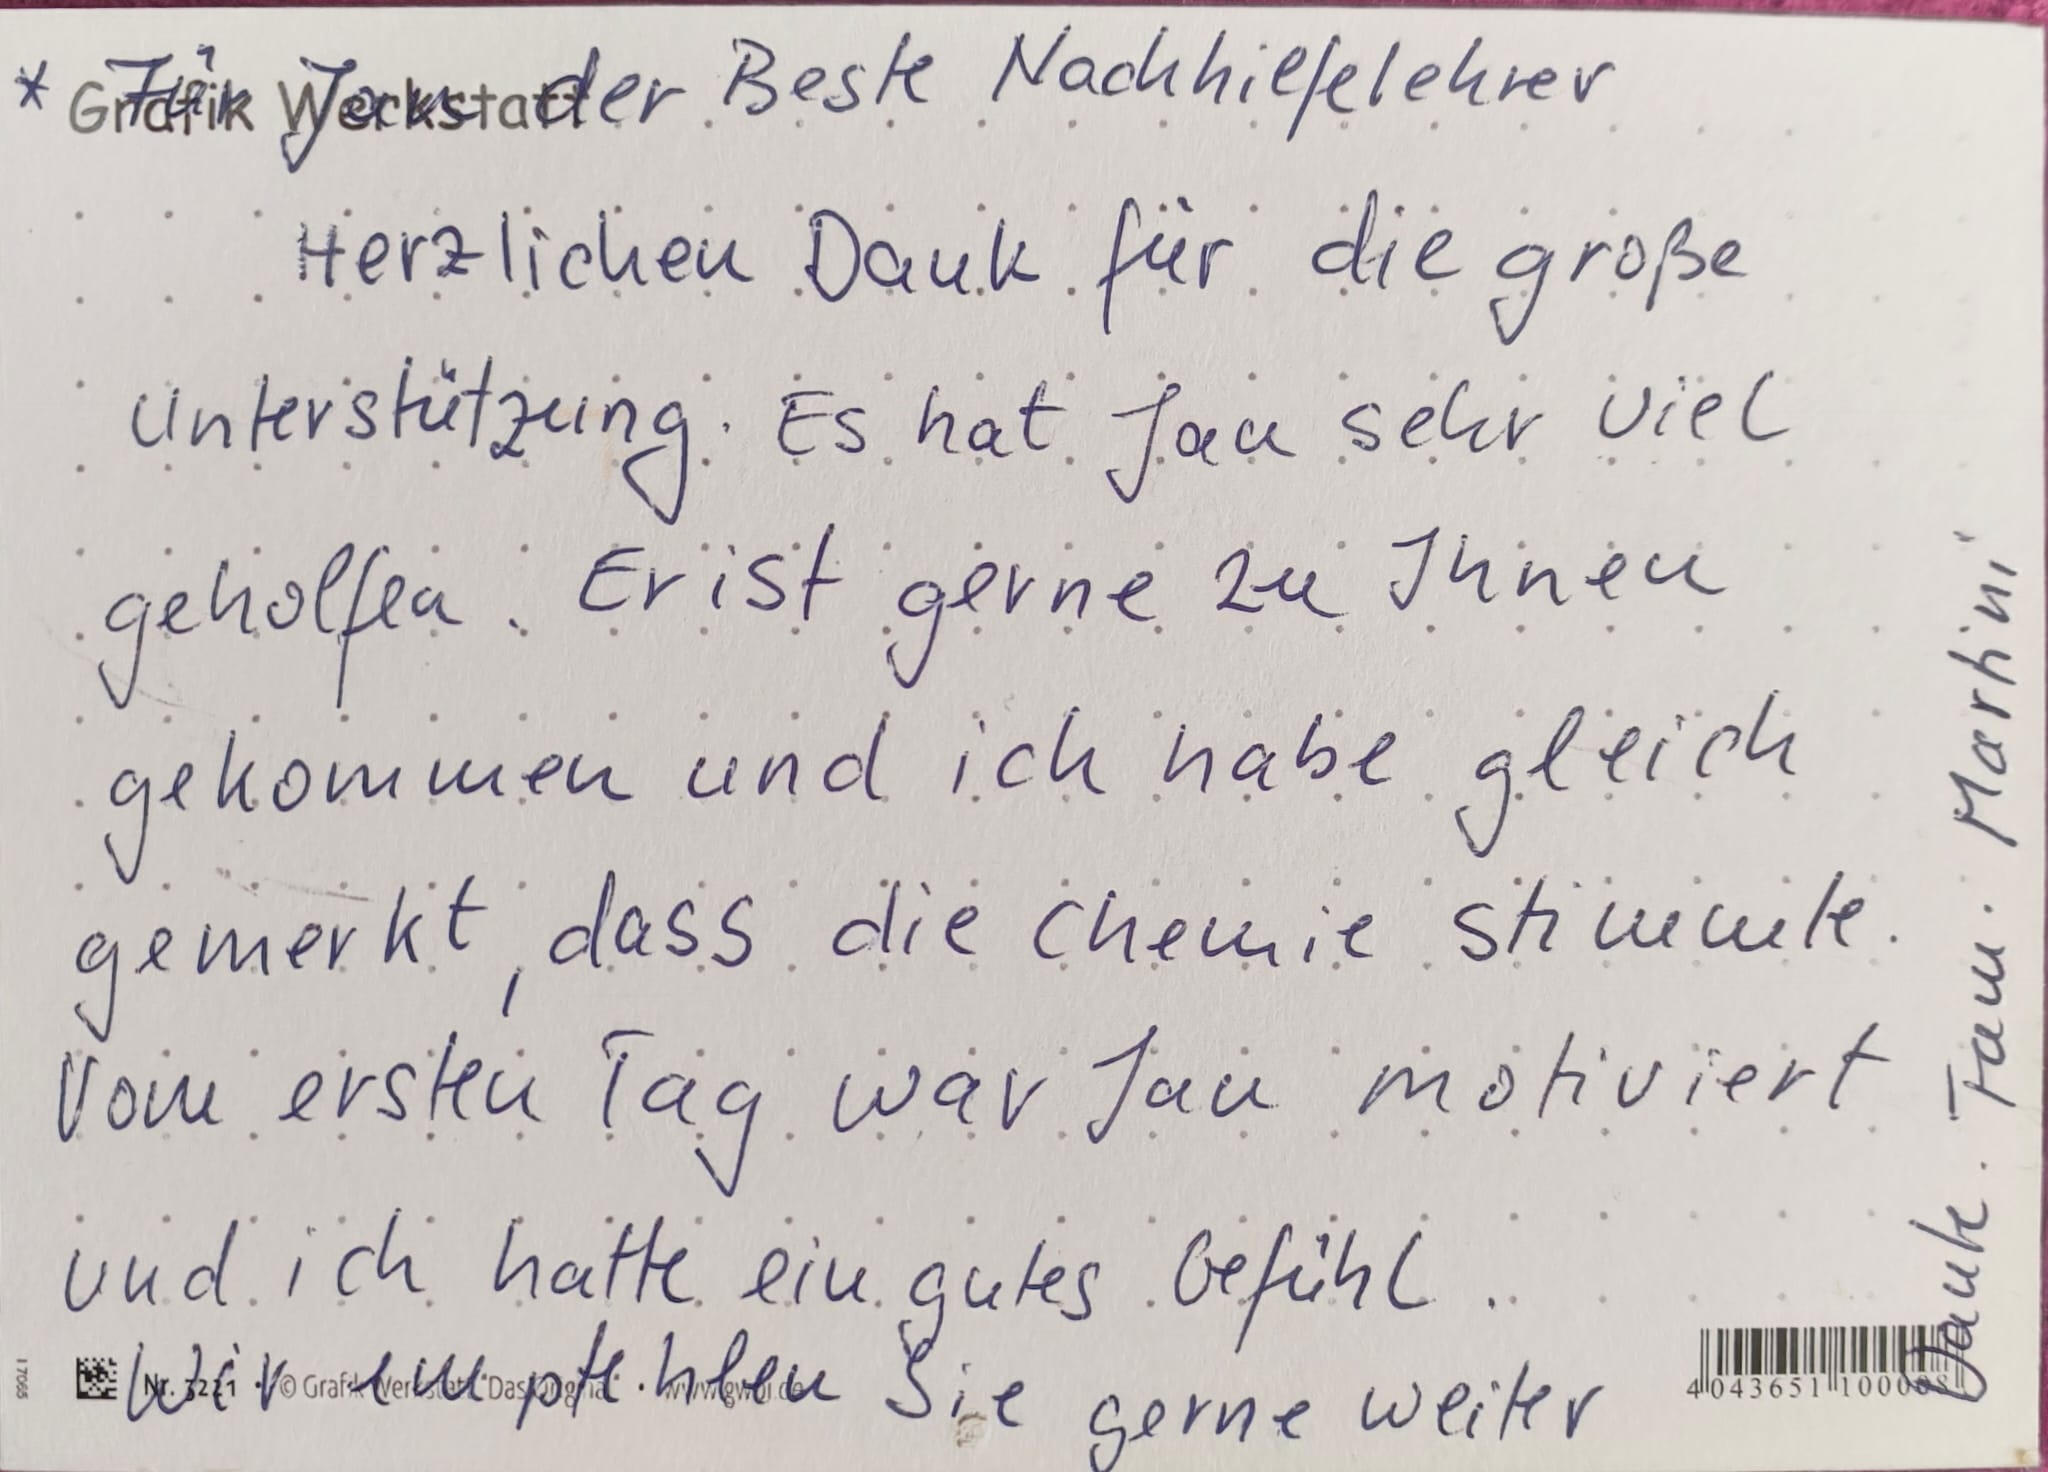 * Für Jan der Beste Nachhilfelehrer
Grafik Werkstatt
Herzlichen Dank für die große
Unterstützung. Es hat Jan sehr viel
geholfen. Er ist gerne zu Ihnen
gekommen und ich habe gleich
gemerkt, dass die Chemie stimmte.
Vom ersten Tag war Jan motiviert
und ich hatte ein gutes Gefühl.
Wir empfehlen Sie gerne weiter
Danke. Fam. Martini
17065
Nr. 3221 · © Grafik Werkstatt "Das Original" ·
4 043651 10000